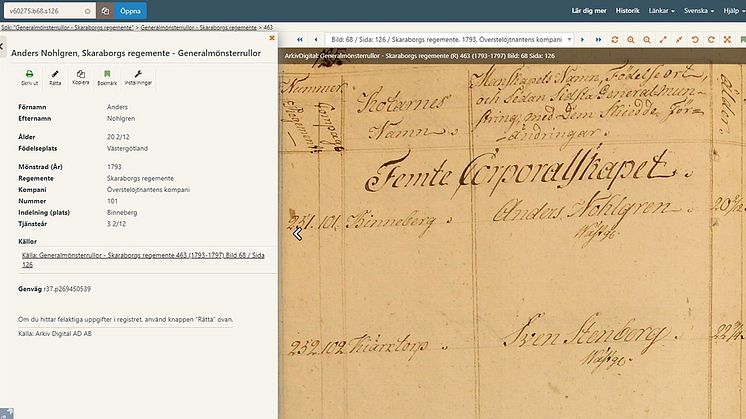 v60275.b68.s126
Öppna
Lär dig mer
Historik
Länkar
Svenska
Hjälp
Sök: "Generalmönsterrullor - Skaraborgs regemente" > Generalmönsterrullor - Skaraborgs regemente > 463
Bild: 68 / Sida: 126 / Skaraborgs regemente. 1793. Överstelöjtnantens kompani
ArkivDigital: Generalmönsterrullor - Skaraborgs regemente (R) 463 (1793-1797) Bild: 68 Sida: 126
Anders Nohlgren, Skaraborgs regemente - Generalmönsterrullor
Skriv ut
Rätta
Kopiera
Bokmärk
Inställningar
Förnamn Anders
Efternamn Nohlgren
Ålder 20 2/12
Födelseplats Västergötland
Mönstrad (År) 1793
Regemente Skaraborgs regemente
Kompani Överstelöjtnantens kompani
Nummer 101
Indelning (plats) Binneberg
Tjänsteår 3 2/12
Källor
Källa: Generalmönsterrullor - Skaraborgs regemente 463 (1793-1797) Bild 68 / Sida
126
Genväg r37.p269450539
Om du hittar felaktiga uppgifter i registret, använd knappen "Rätta" ovan.
Källa: Arkiv Digital AD AB
Nummer
Regements
Compagn
Rotarnes
Namn
Manskapets Namn, Födelse ort,
och Sedan Sidsta General mun-
string, med Dem Skiedde För-
ändringar.
ålder
Femte Corporalskapet
251. 101. Binneberg
Anders Nohlgren
Wästg:
252. 102.
Sven Stenberg
Wästg: